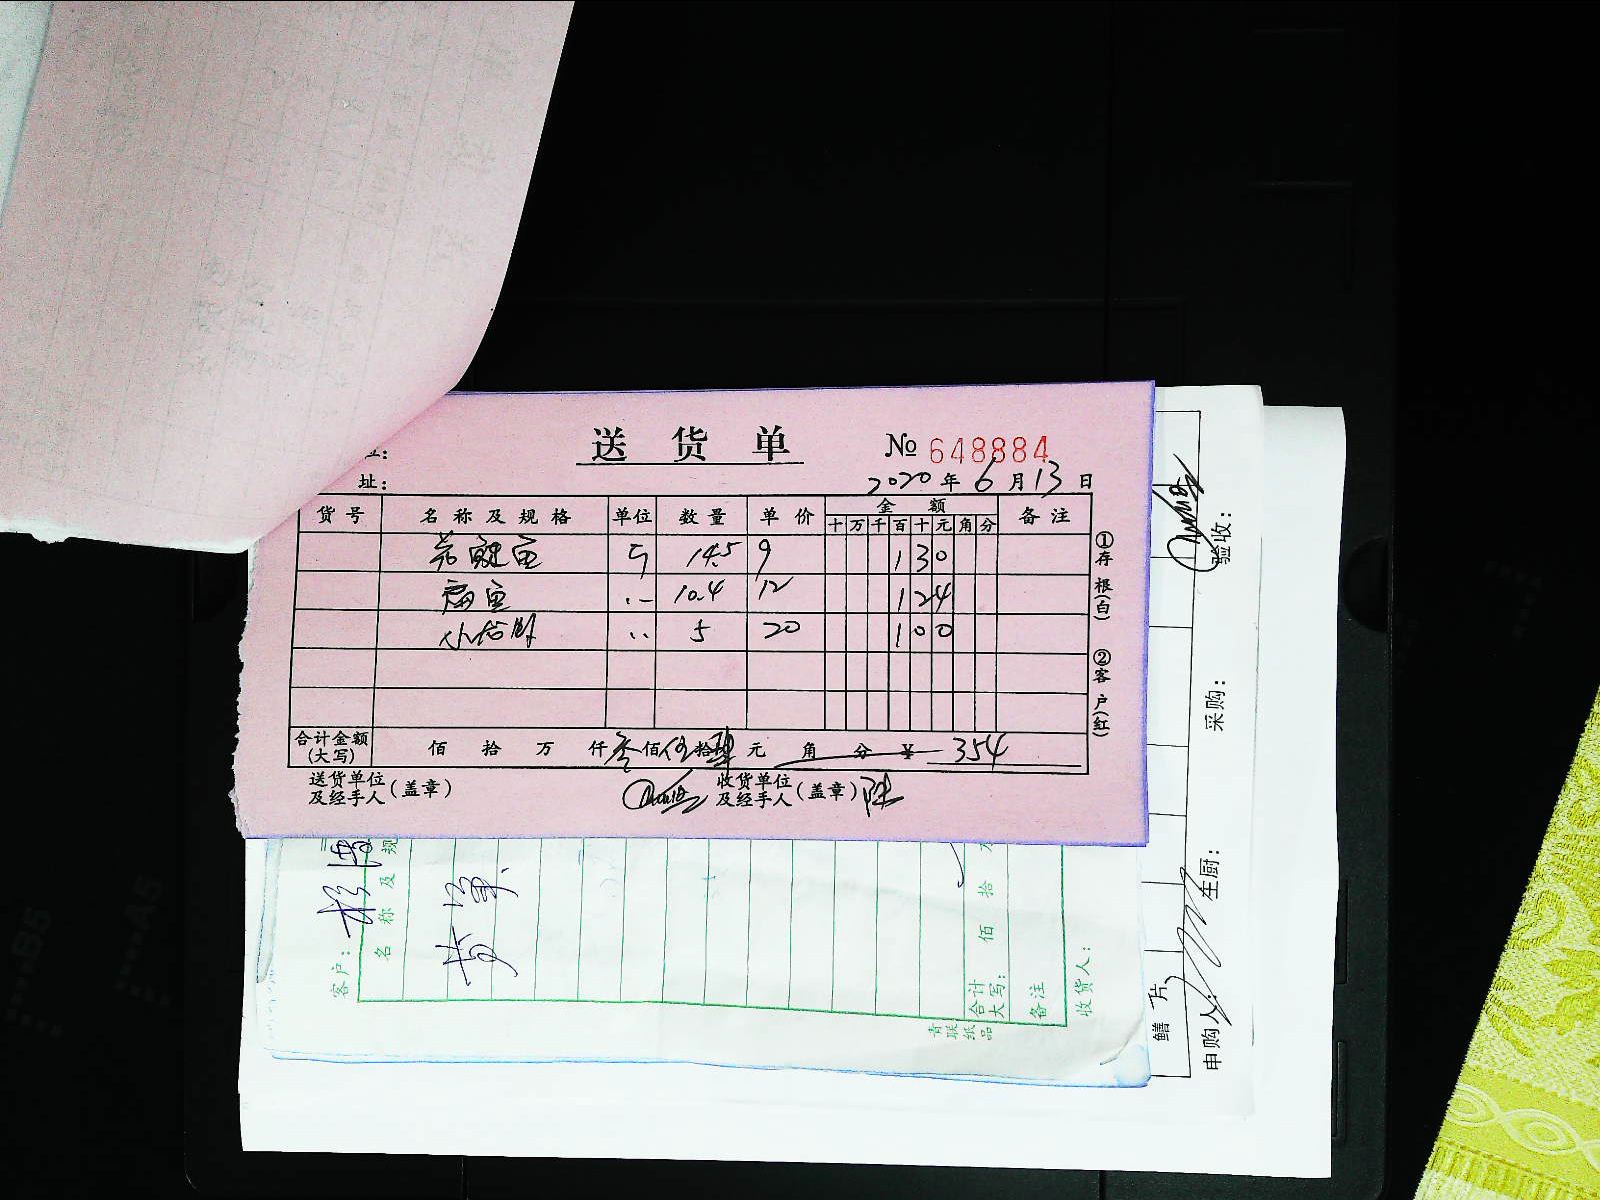 送货单 № 648884
址：
2020年6月13日
货号 名称及规格 单位 数量 单价 金额 备注
十 万 千 百 十 元 角 分
14.5 9 130
扁鱼 10.4 12 124
5 20 100
合计金额(大写) 佰 拾 万 仟 叁佰 伍拾 肆元 角 分 ¥ 354
送货单位及经手人(盖章) 收货单位及经手人(盖章) 陈
①存根(白) ②客户(红)
客户：
名称及规
黄
合计大写： 佰 拾 万
备注
收货人：
青联纸品
鳝片
验收： 采购： 生厨： 申购人：
B5
A5